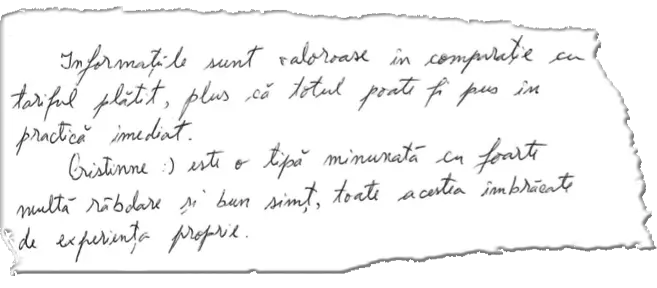 Informațiile sunt valoroase în comparație cu
tariful plătit, plus că totul poate fi pus în
practică imediat.
Cristinne :) este o tipă minunată cu foarte
multă răbdare și bun simț, toate acestea îmbrăcate
de experiența proprie.